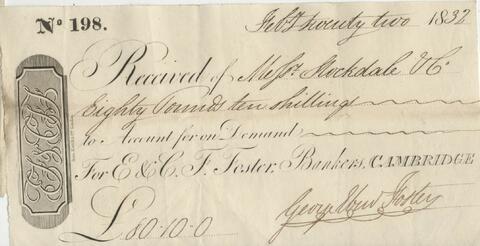 No 198.
Feby twenty two 1832
Received of Messrs Stockdale & Co.
Eighty Pounds ten shillings
to Account for on Demand
For E & C. F. Foster, Bankers, CAMBRIDGE
£80-10-0
Foster